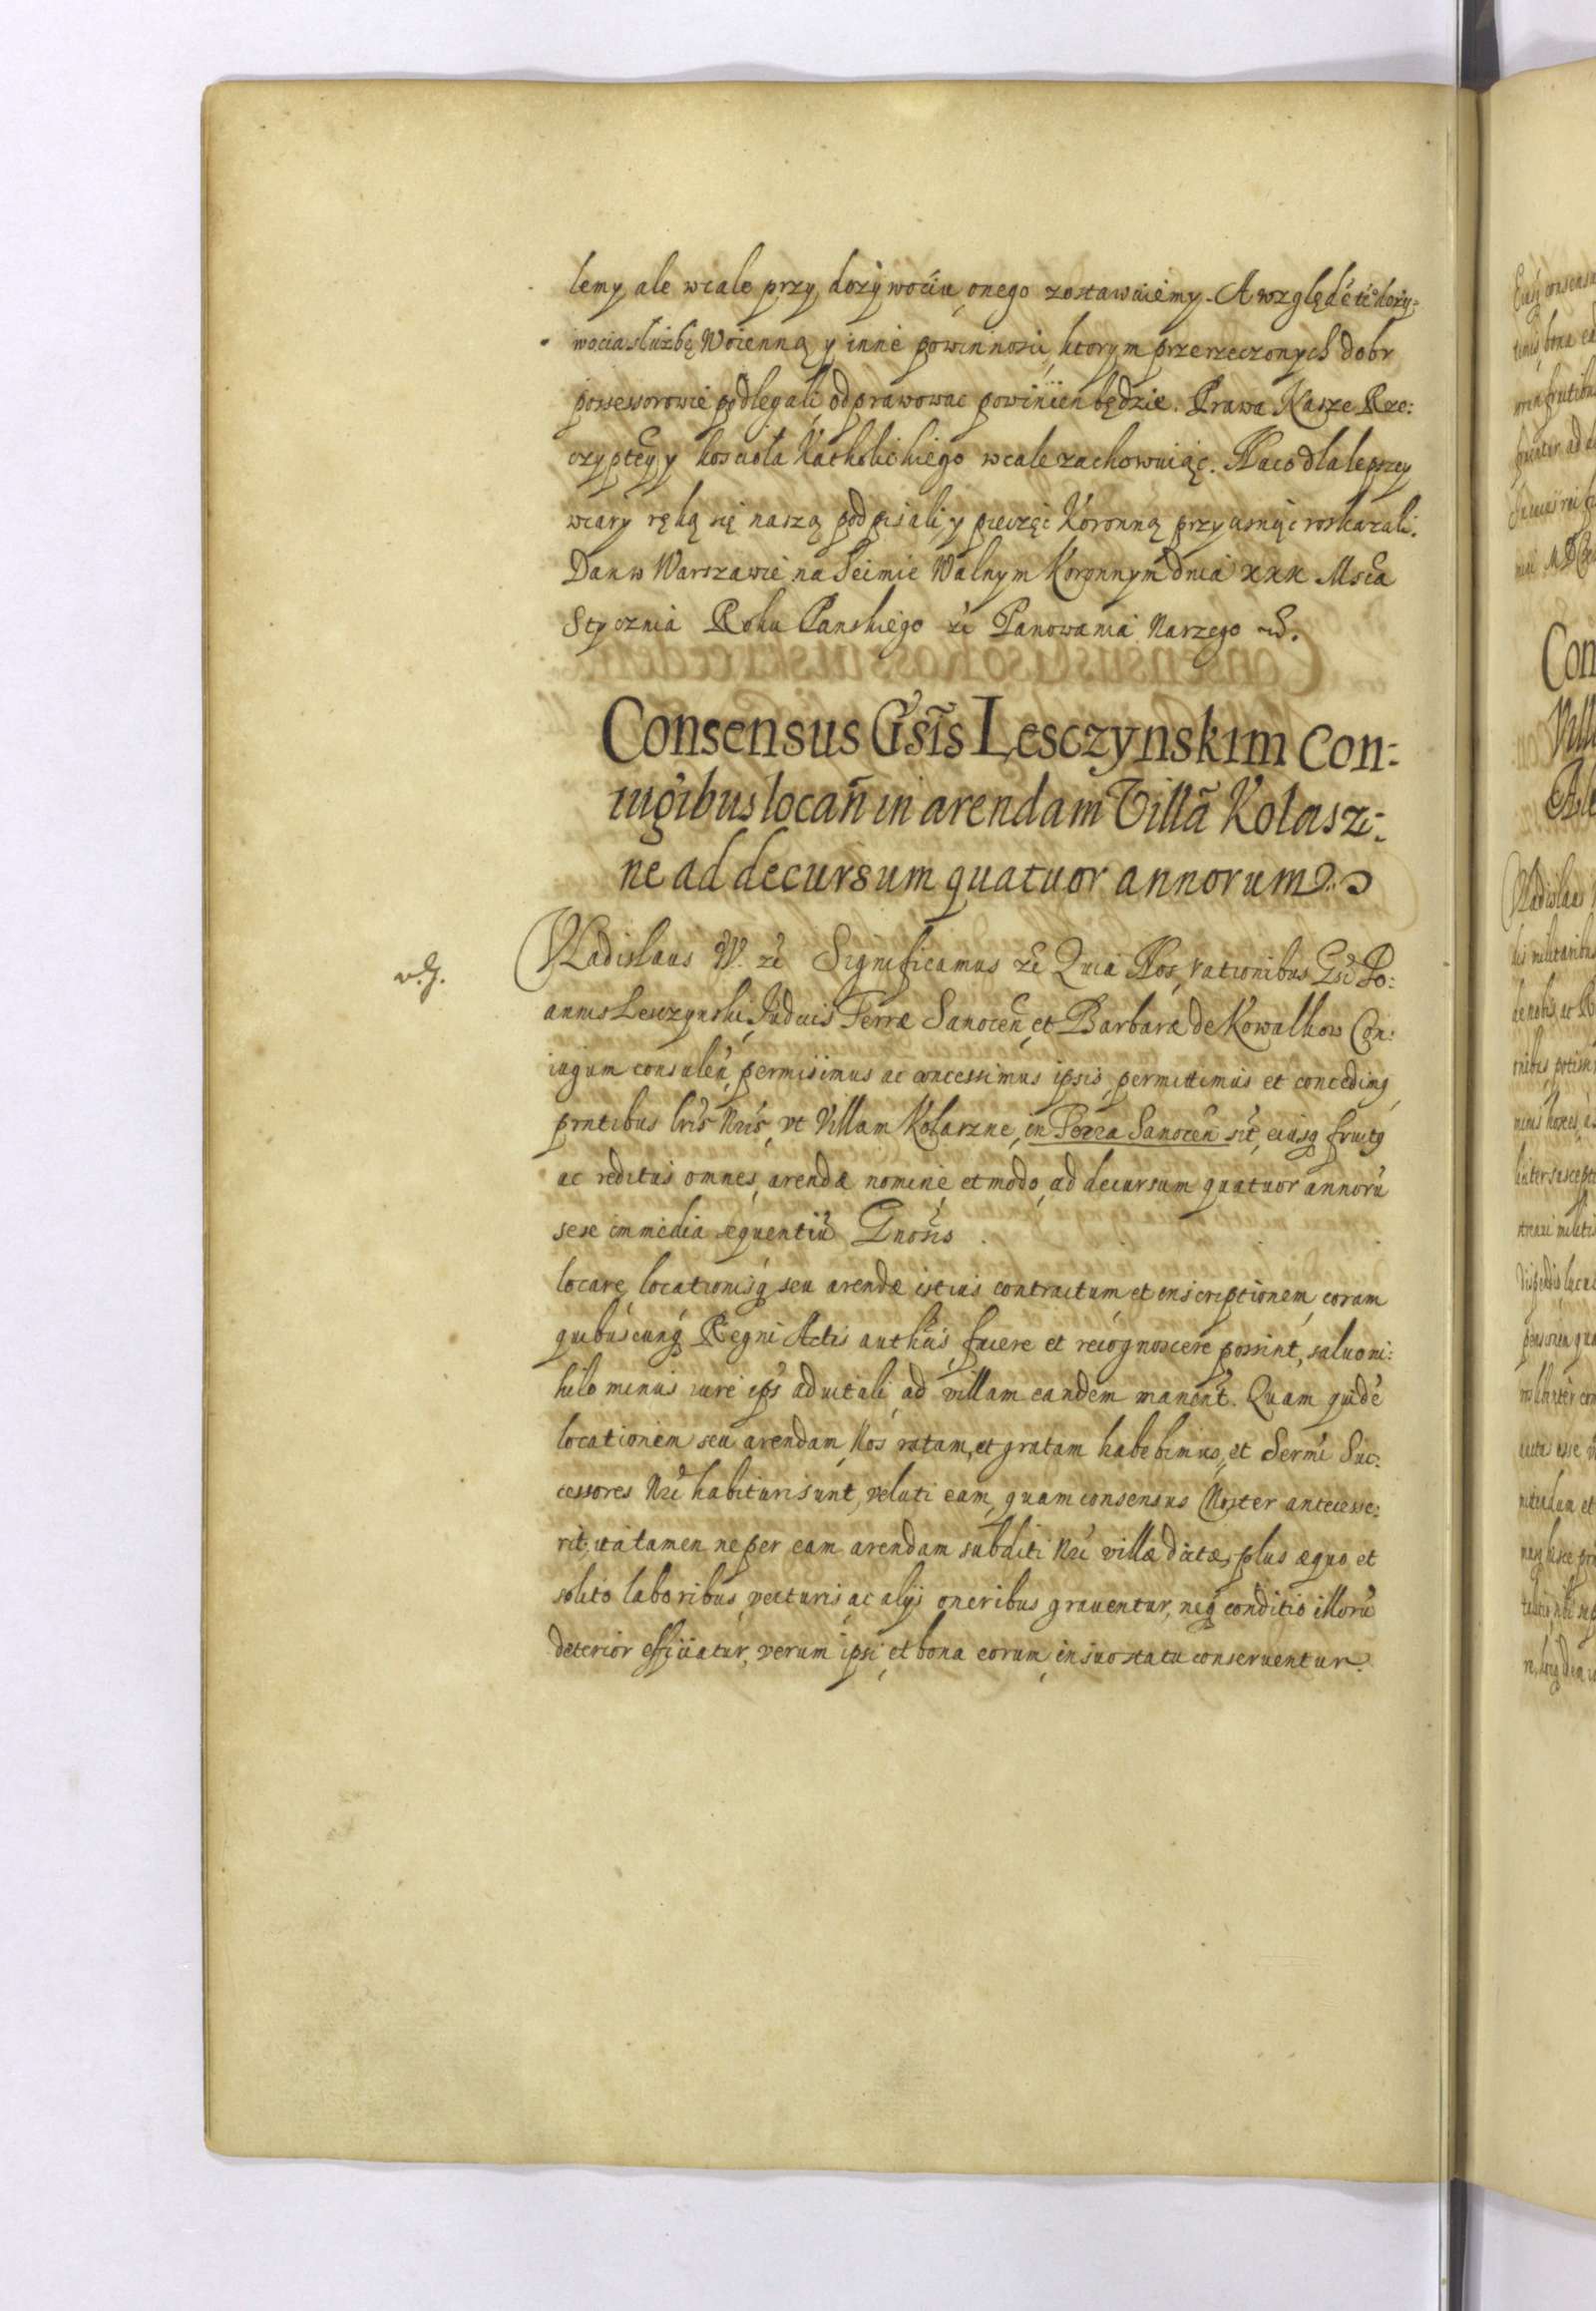 lemy, ale wcale przy dożywociu onego zostawuiemy. A względē te° doży=
wocia służbę Woienną y inne powinnosci, ktorym przerzeczonych dobr
possessorowie podlegali, odprawowac powinien będzie. Prawa Nasze Rze:
czyptey y koscioła Katholickiego wcale zachowuiąc. Na co dla lepszey
wiary ręką się naszą podpisali, y pieczęć Koronną przycisnąc roskazali.
Dan w Warszawie na Seimie Walnym Koronnym dnia XXX Msca
Stycznia Roku Panskiego zc Panowania Naszego
Consensus Gsis Lesczynskim Con:
iugibus locan in arendam Villā Kolasz:
ne ad decursum quatuor annorum
Vladislaus IV. zc Significamus zc Quia Nos, rationibus Gsi Jo:
annis Lesczynski Judicis Terræ Sanocen, et Barbaræ de Kowalkow Con:
iugum consulen, permisimus ac concessimus ipsis, permittimus et concedimg
prntibus lris Nris, vt Villam Kolaszne, in Terra Sanocen sit, eiusq fructg
ac reditus omnes, arendæ nomine et modo, ad decursum quatuor annorū
sese immedia sequentiū Gnosis
locare, locationisq seu arendæ istius contractum et inscriptionem, coram
quibuscunq Regni Actis authcis, facere et recognoscere possint, saluo ni:
hilo minus iure ips aduitali, ad villam eandem manent. Quam quidē
locationem seu arendam, Nos ratam, et gratam habebimus, et Sermi Suc:
cessores Nri habituri sunt, veluti eam, quam consensus Noster antecesse:
rit, ita tamen ne per eam arendam subditi Nri villæ dictæ, plus æquo et
solito laboribus, vecturis, ac alys oneribus grauentur, neq conditio illorū
deterior efficiatur, verum ipsi et bona eorum, in suo statu conseruentur.